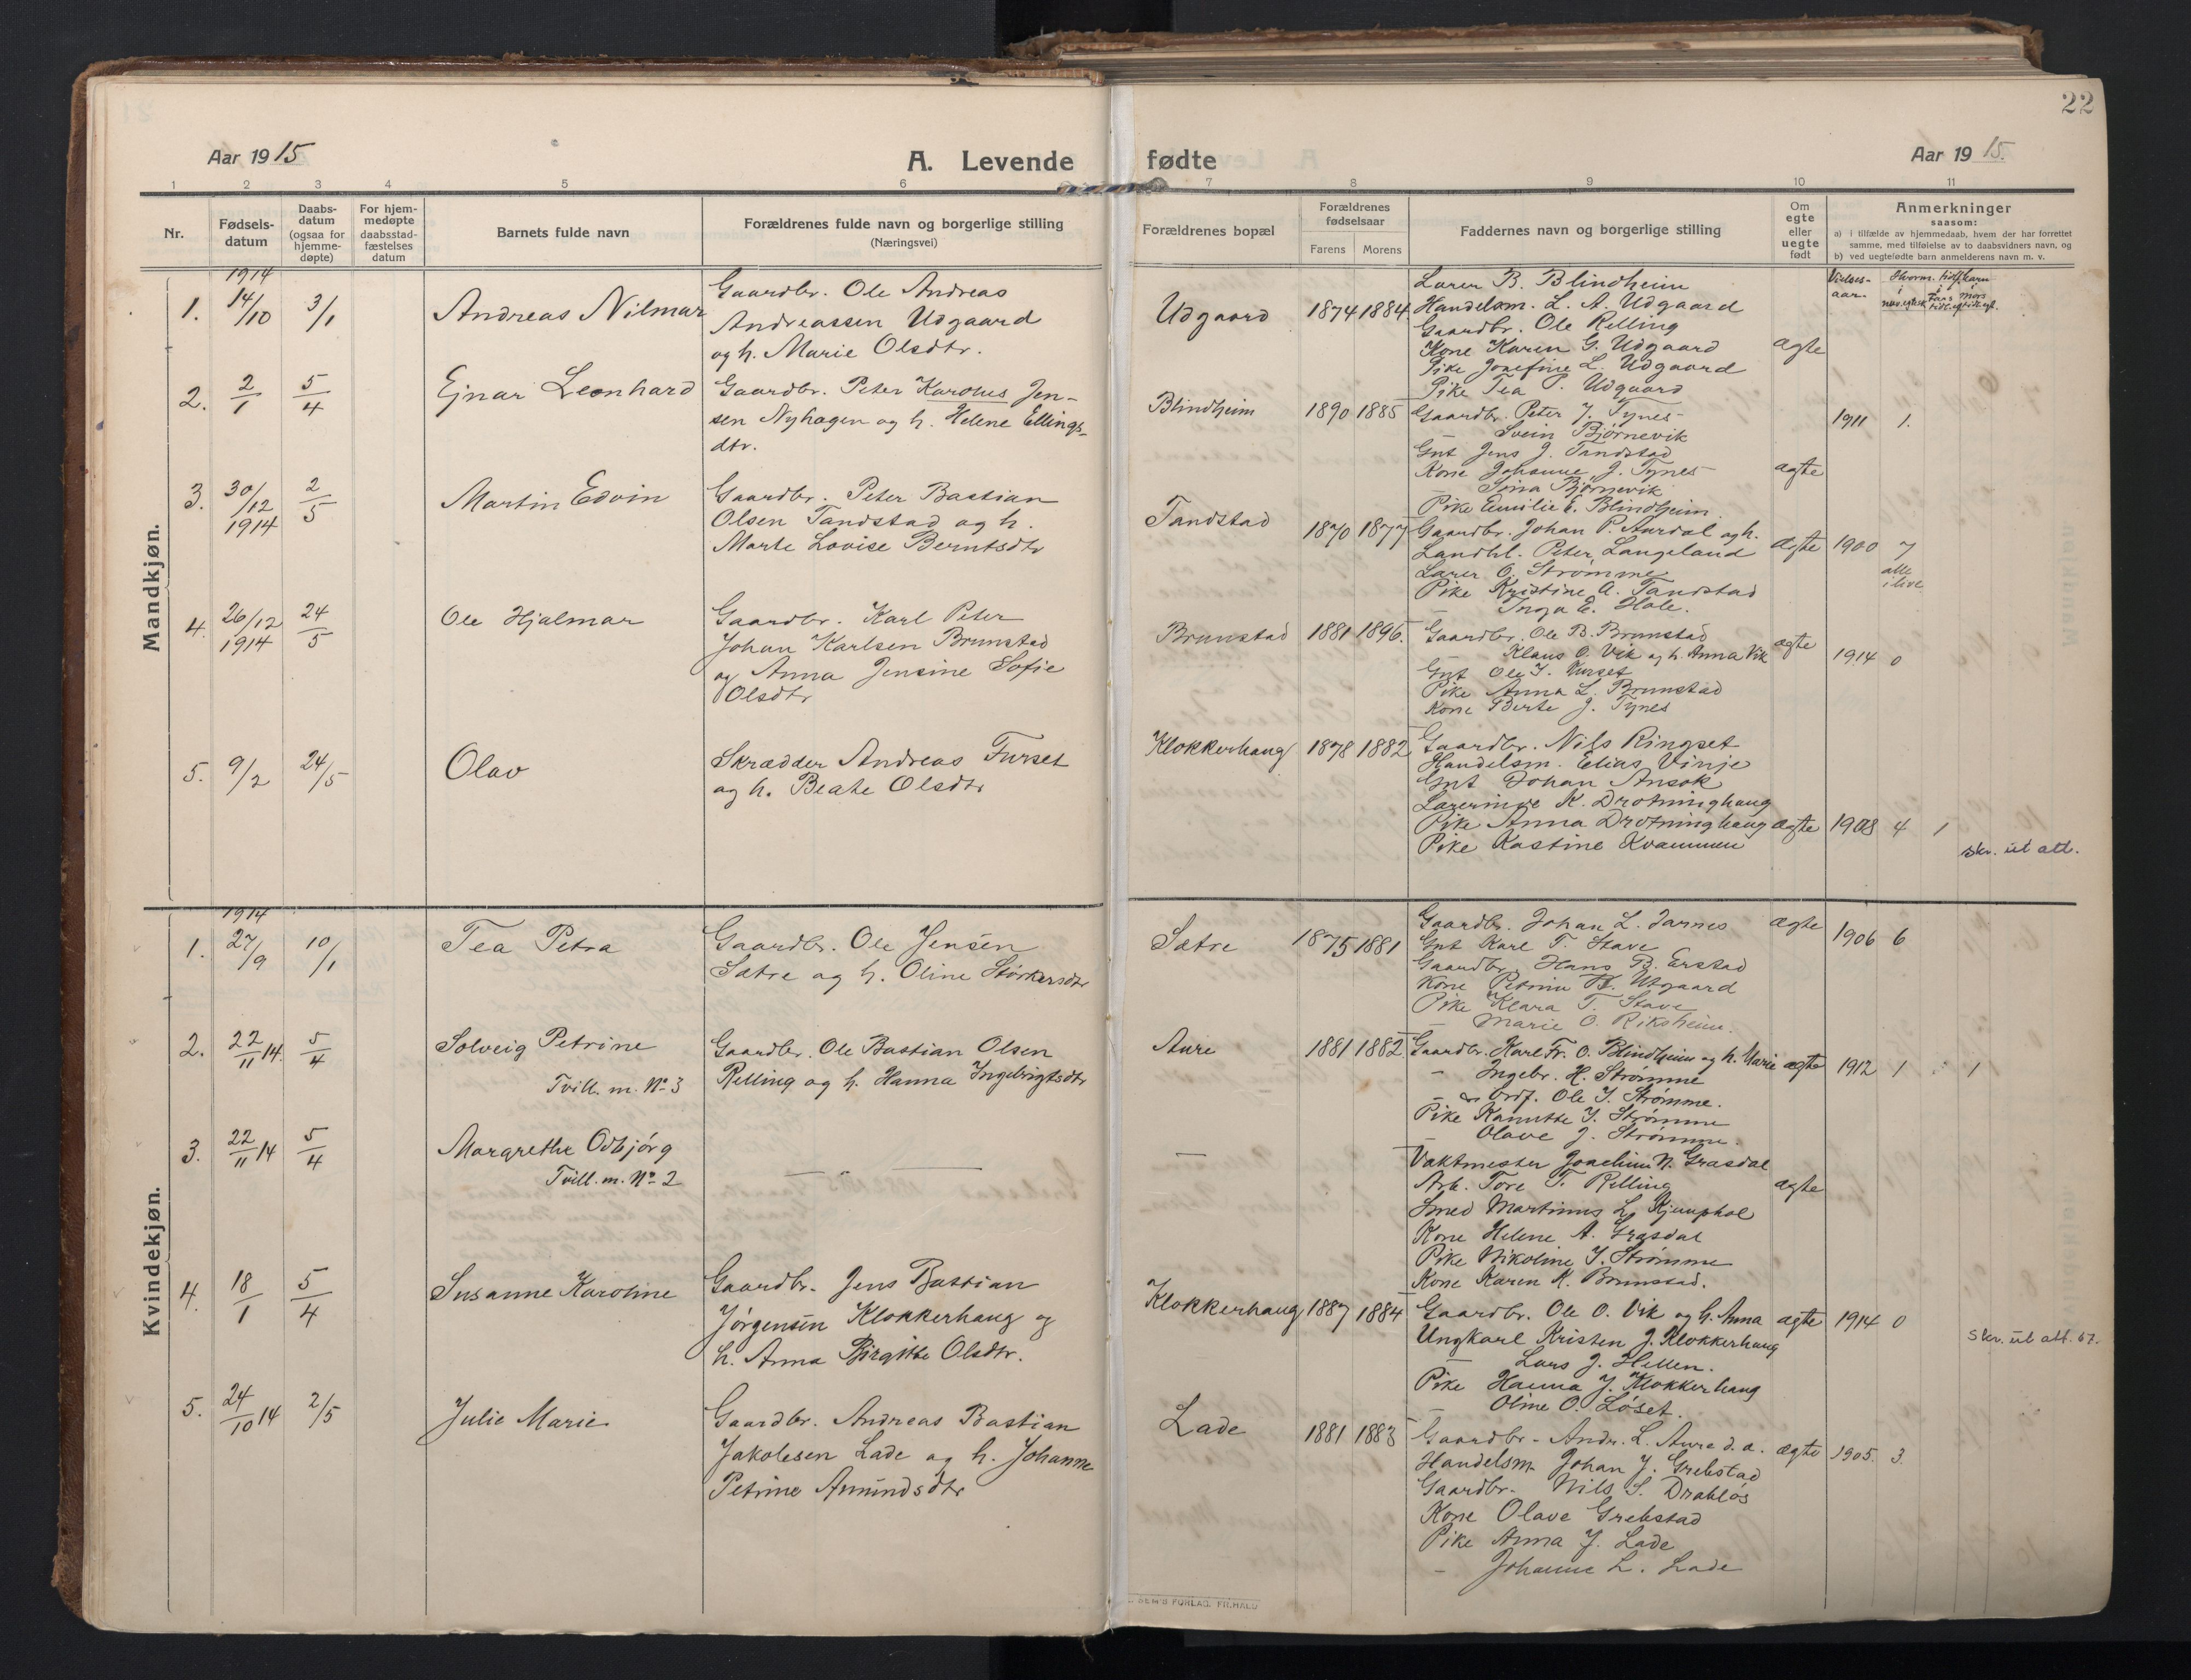 22
Aar 1915
A. Levende
fødte
Aar 1915.
1 2 3 4 5 6 7 8 9 10 11
Nr.
Fødsels-
datum
Daabs-
datum
(ogsaa for
hjemme-
døpte)
For hjem-
medøpte
daabsstad-
fæstelses
datum
Barnets fulde navn
Forældrenes fulde navn og borgerlige stilling
(Næringsvei)
Forældrenes bopæl
Forældrenes
fødselsaar
Farens Morens
Faddernes navn og borgerlige stilling
Om
egte
eller
uegte
født
Anmerkninger
saasom:
a) i tilfælde av hjemmedaab, hvem der har forrettet
samme, med tilføielse av to daabsvidners navn, og
b) ved uegtefødte barn anmelderens navn m. v.
Mandkjøn.
1914
1. 14/10 3/1 Andreas Nilmar
Gaardbr. Ole Andreas
Andreassen Udgaard
og h. Marie Olsdtr.
Udgaard 1874 1884
Lærer B. Blindheim
Handelsm. L. A. Udgaard
Gaardbr. Ole Relling
Kone Karen G. Udgaard
Pike Josefine L. Udgaard
Pike Tea P. Udgaard
ægte
Vielses-
aar
2. 2/1 5/4 Ejnar Leonhard
Gaardbr. Peter Karolus Jen-
sen Nyhagen og h. Helene Ellings-
dtr.
Blindheim 1890 1885
Gaardbr. Peter J. Tynes
— Svein Bjørnevik
Gut Jens J. Tandstad
Kone Johanne J. Tynes
— Sina Bjørnevik
Pike Emilie E. Blindheim.
ægte 1911 1.
3. 30/12 1914 2/5 Martin Edvin
Gaardbr. Peter Bastian
Olsen Tandstad og h.
Marte Lovise Berntsdtr
Tandstad 1870 1877
Gaardbr. Johan P. Aurdal og h.
Landhl. Peter Langeland
Lærer O. Strømme
Pike Kristine A. Tandstad
— Inga E. Hole.
ægte 1900 7
alle
i live
4. 26/12 1914 24/5 Ole Hjalmar
Gaardbr. Karl Peter
Johan Karlsen Brunstad
og Anna Jensine Sofie
Olsdtr
Brunstad 1881 1896.
Gaardbr. Ole B. Brunstad
Klaus O. Vik og h. Anna Vik
Gut Ole J. Furset
Pike Anna L. Brunstad
Kone Berte J. Tynes
ægte 1914 0
5. 9/2 24/5 Olav
Skrædder Andreas Furset
og h. Beate Olsdtr
Klokkerhaug 1878 1882
Gaardbr. Nils Ringset
Handelsm. Elias Vinje
Gut Johan Ansok
Lærerinde K. Drotninghaug
Pike Anna Drotninghaug
Pike Kastine Kvammen
ægte 1908 4 1
skr. ut att.
Kvindekjøn.
1914
1. 27/9 10/1 Tea Petra
Gaardbr. Ole Jensen
Sætre og h. Oline Størkersdtr
Sætre 1875 1881
Gaardbr. Johan L. Jarnes
Gut Karl T. Stave
Gaardbr. Hans B. Erstad
Kone Petrine B. Utgaard
Pike Klara T. Stave
— Marie O. Riksheim.
ægte 1906 6
2. 22/11 14. 5/4 Solveig Petrine
Tvill. m. No 3
Gaardbr. Ole Bastian Olsen
Relling og h. Hanna Ingebrigtsdtr
Aure 1881 1882
Gaardbr. Karl Fr. O. Blindheim og h. Marie
— Ingebr. H. Strømme
— Ordf. Ole J. Strømme.
Pike Kanutte J. Strømme
— Olave J. Strømme.
ægte 1912 1 1
3. 22/11 14 5/4 Margrethe Odbjørg
Tvill. m. No 2
— —
—
Vaktmester Joachim N. Grasdal
Arb. Tore T. Relling
Smed Martinus L. Kjemphol
Kone Helene A. Grasdal
Pike Nikoline J. Strømme
Kone Karen K. Brunstad.
ægte
4. 18/1 5/4 Susanne Karoline
Gaardbr. Jens Bastian
Jørgensen Klokkerhaug og
h. Anna Birgitte Olsdtr.
Klokkerhaug 1887 1884
Gaardbr. Ole O. Vik og h. Anna
Ungkarl Kristen J. Klokkerhaug
— Lars J. Hellen.
Pike Hanna J. Klokkerhaug
— Oline O. Løset.
ægte 1914 0
Skr. ut att. 67.
5. 24/10 14 2/5 Julie Marie
Gaardbr. Andreas Bastian
Jakobsen Lade og h. Johanne
Petrine Amundsdtr
Lade 1881 1883
Gaardbr. Andr. L. Aure d. a.
Handelsm. Johan J. Grebstad
Gaardbr. Nils S. Drabløs
Kone Olave Grebstad
Pike Anna J. Lade
— Johanne L. Lade
ægte 1905. 3.
SEM'S FORLAG, FR.HALD